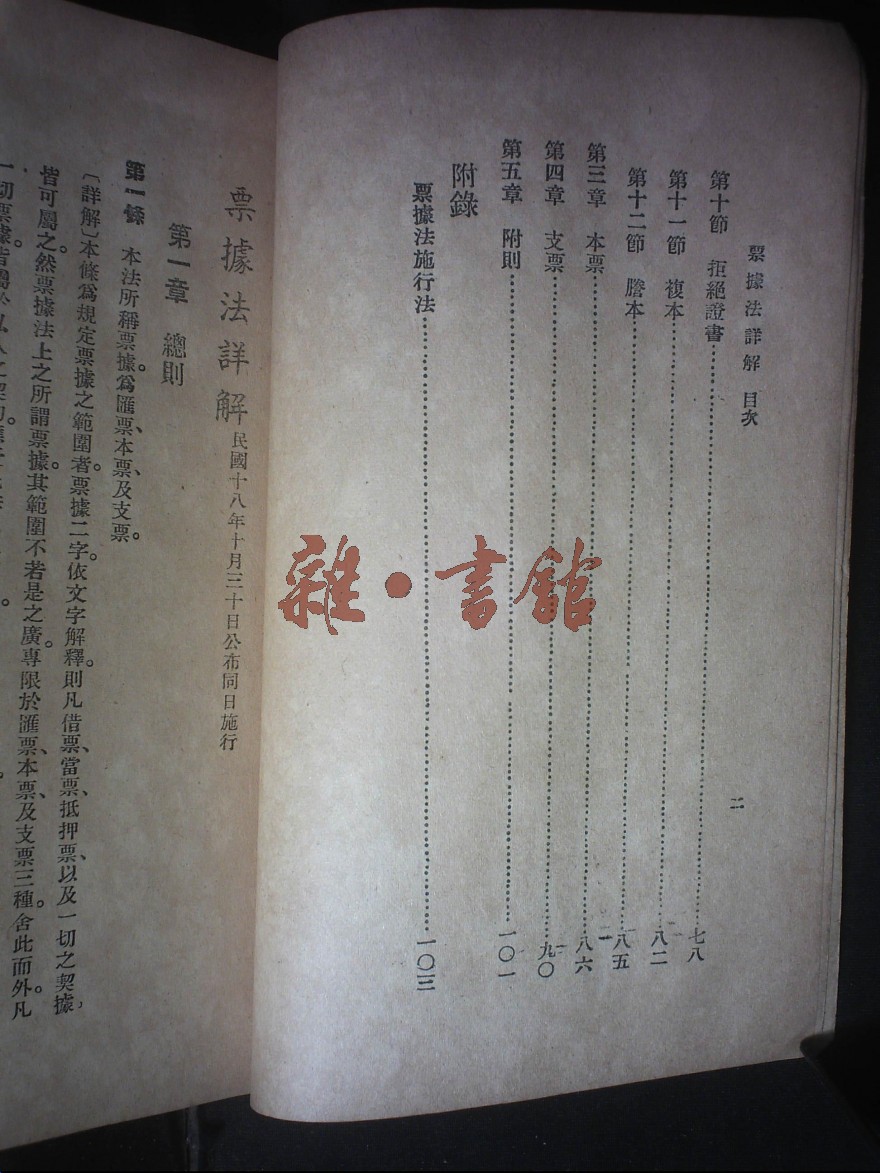 票據法詳解 目次
二
第十節 拒絕證書……七八
第十一節 複本……八二
第十二節 謄本……八五
第三章 本票……八六
第四章 支票……九〇
第五章 附則……一〇一
附錄
票據法施行法……一〇三
票據法詳解 民國十八年十月三十日公布同日施行
第一章 總則
第一條 本法所稱票據。爲匯票、本票、及支票。
〔詳解〕本條爲規定票據之範圍者。票據二字。依文字解釋。則凡借票、當票、抵押票、以及一切之契據、
皆可屬之。然票據法上之所謂票據。其範圍不若是之廣。專限於匯票、本票、及支票三種。舍此而外。凡
一切票據。皆屬於私人之契
雜·書館